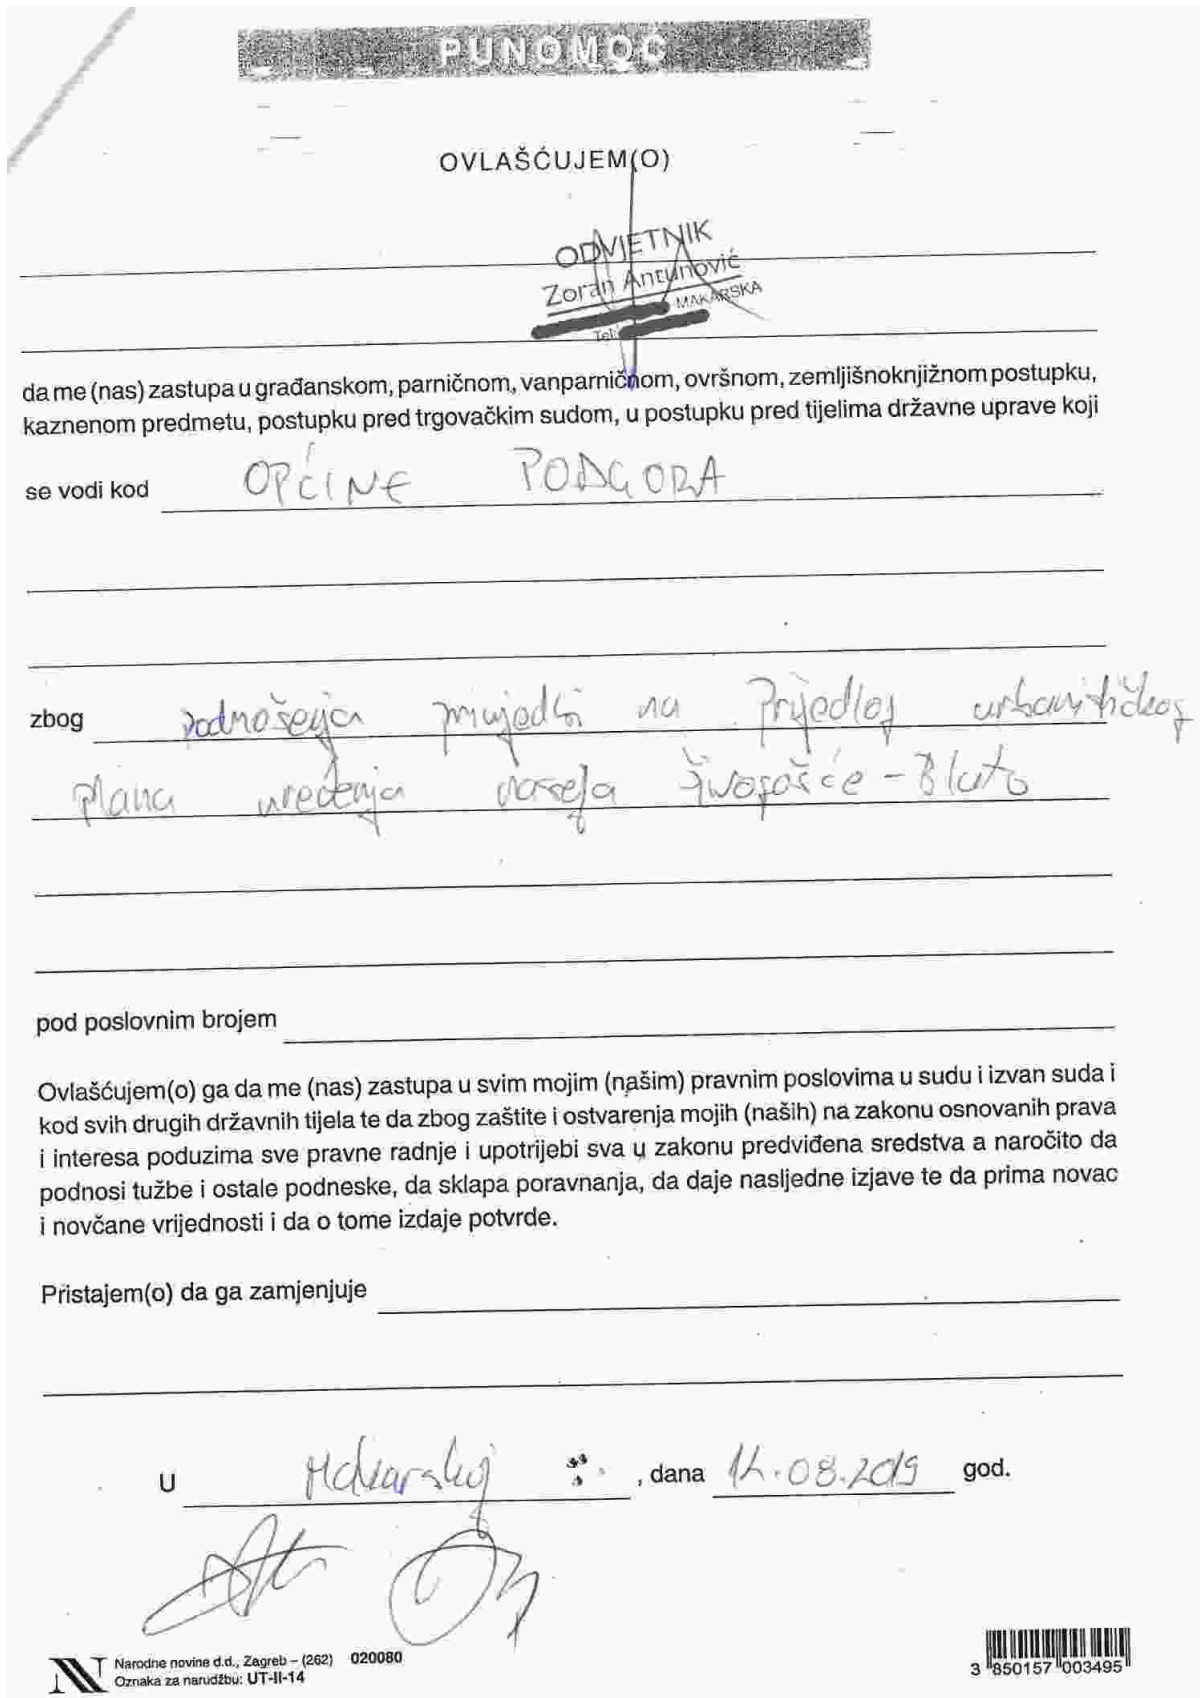 PUNOMOĆ
OVLAŠĆUJEM(O)
ODVJETNIK
Zoran Antunović
MAKARSKA
Tel:
da me (nas) zastupa u građanskom, parničnom, vanparničnom, ovršnom, zemljišnoknjižnom postupku,
kaznenom predmetu, postupku pred trgovačkim sudom, u postupku pred tijelima državne uprave koji
se vodi kod OPĆINE PODGORA
zbog podnošenja primjedbi na Prijedlog urbanističkog
plana uređenja naselja Živogošće - Blato
pod poslovnim brojem
Ovlašćujem(o) ga da me (nas) zastupa u svim mojim (našim) pravnim poslovima u sudu i izvan suda i
kod svih drugih državnih tijela te da zbog zaštite i ostvarenja mojih (naših) na zakonu osnovanih prava
i interesa poduzima sve pravne radnje i upotrijebi sva u zakonu predviđena sredstva a naročito da
podnosi tužbe i ostale podneske, da sklapa poravnanja, da daje nasljedne izjave te da prima novac
i novčane vrijednosti i da o tome izdaje potvrde.
Pristajem(o) da ga zamjenjuje
U Makarskoj , dana 14.08.2019 god.
Narodne novine d.d., Zagreb – (262) 020080
Oznaka za narudžbu: UT-II-14
3 850157 003495